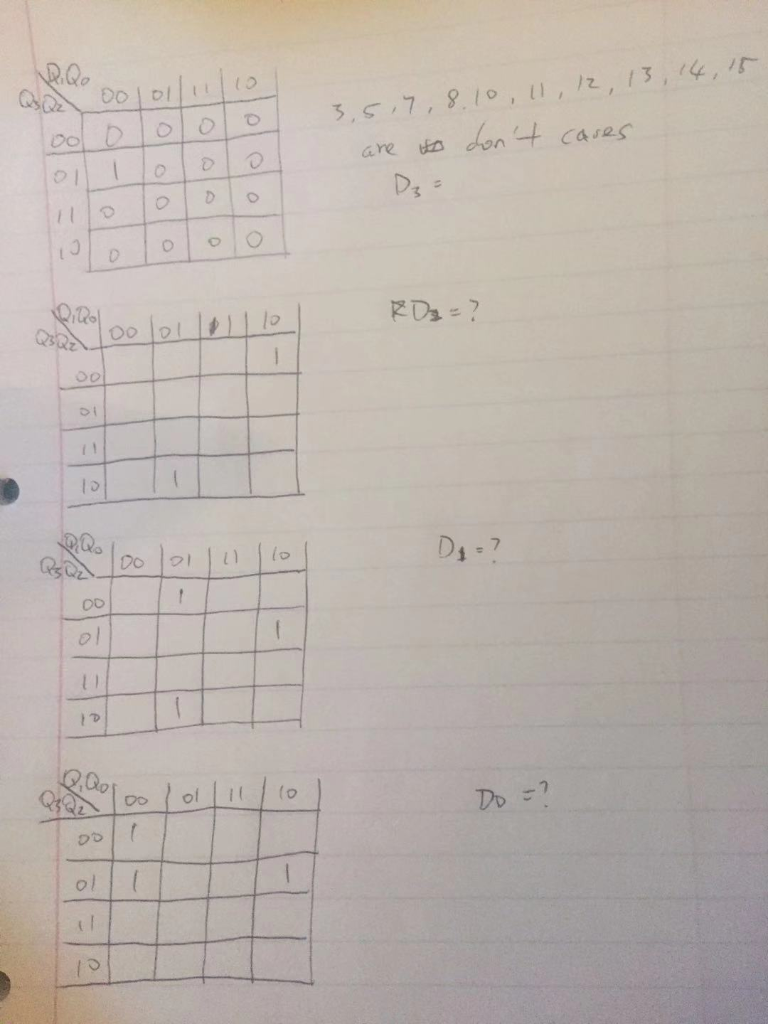 Q1Q0
Q3Q2 00 01 11 10
00 0 0 0 0
01 1 0 0 0
11 0 0 0 0
10 0 0 0 0
3, 5, 7, 8, 10, 11, 12, 13, 14, 15
are don't cases
D3 =
Q1Q0
Q3Q2 00 01 11 10
00 1
01
11
10 1
D2 = ?
Q1Q0
Q3Q2 00 01 11 10
00 1
01 1
11
10 1
D1 = ?
Q1Q0
Q3Q2 00 01 11 10
00 1
01 1 1
11
10
D0 = ?